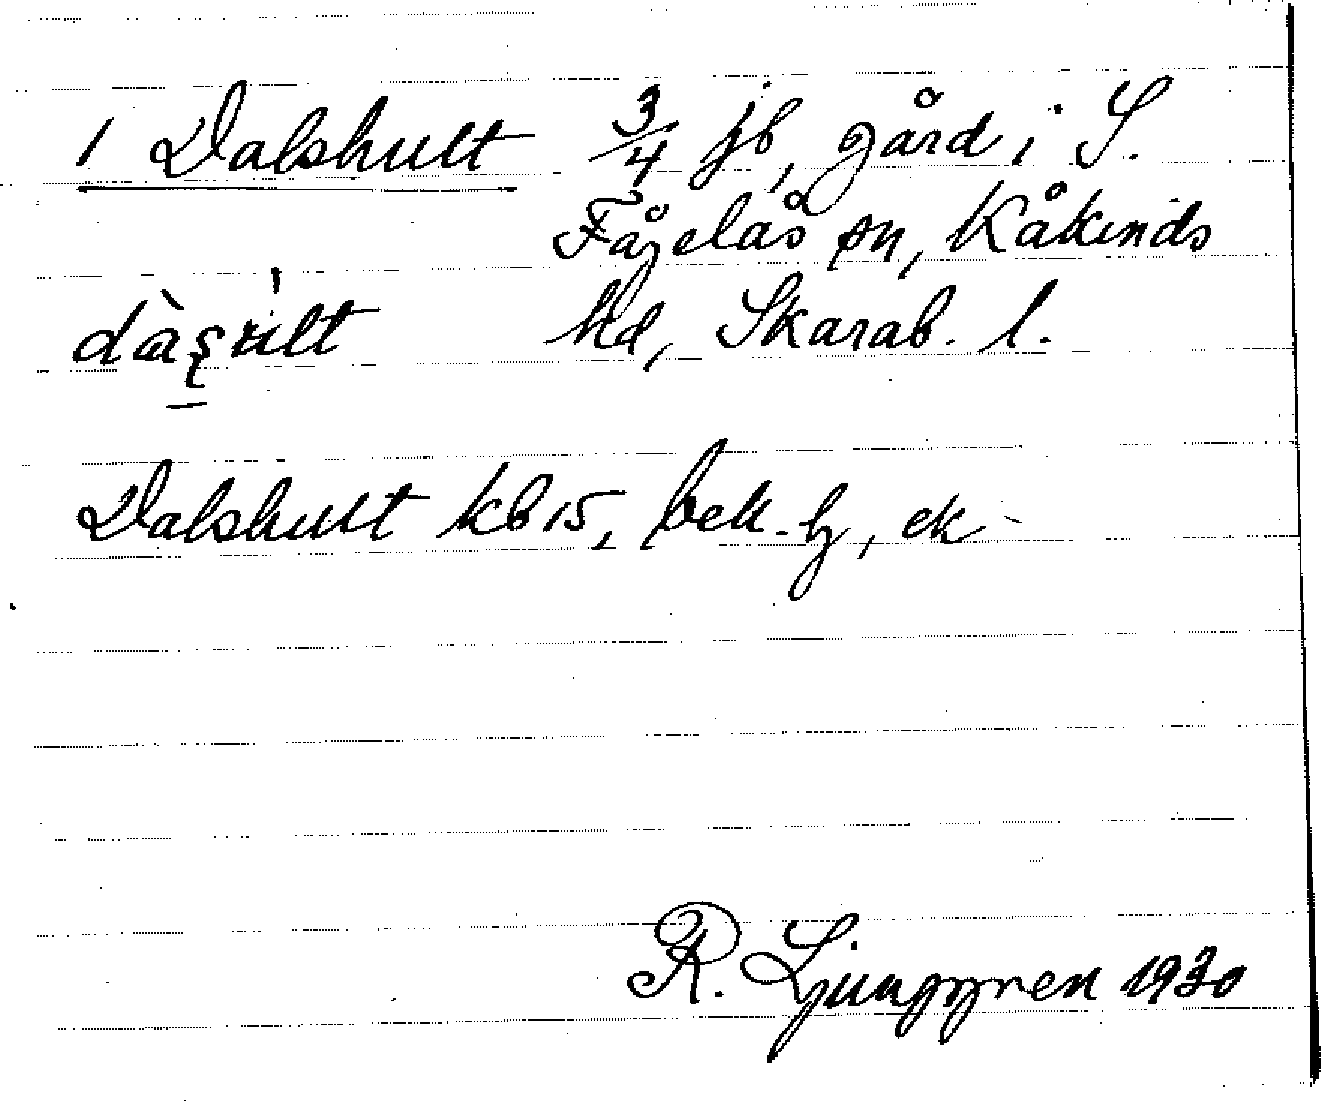 1 Dalshult 3/4 jb, gård i S.
Fågelås sn, Kåkinds
hd, Skarab. l.
Dalshult kb 15, bek-h, ek
R. Ljunggren 1930